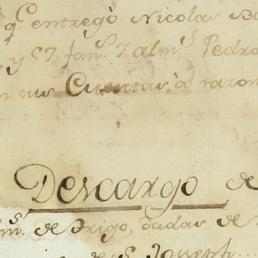 q.e entregò Nicolas Ba
y 57 fan.s 7 alm.s Pedro
en sus Cuentas, à razon
Descargo de
m.s de trigo, dadas de
Joseph